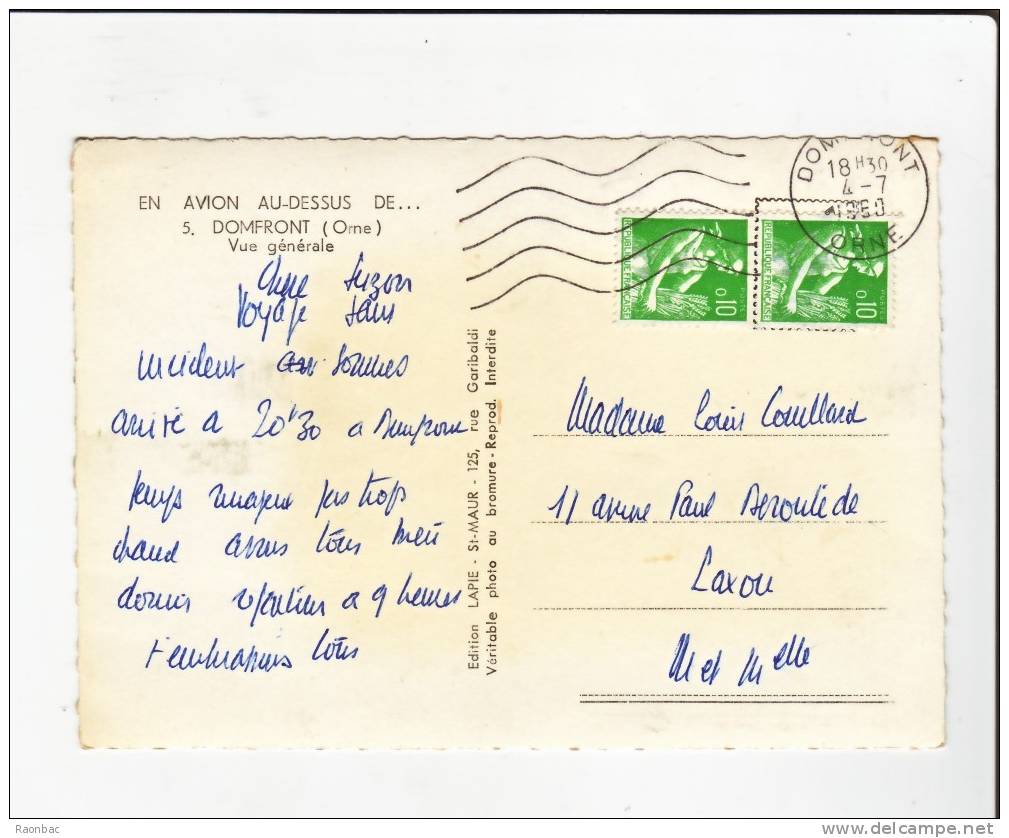 EN AVION AU-DESSUS DE...
5. DOMFRONT (Orne)
Vue générale
Chere Suzon
Voyage sans
incident sommes
arrivé a 20h30 a
temps nuageux pas trop
chaud avons tous bien
dormi a 9 heures
t'embrassons tous
Edition LAPIE - St-MAUR - 125, rue Garibaldi
Véritable photo au bromure - Reprod. Interdite
DOMFRONT
18H30
4-7
1960
ORNE
REPUBLIQUE FRANÇAISE
0,10
REPUBLIQUE FRANÇAISE
0,10
Madame Louis
11 avenue Paul Deroulède
Laxou
M et Melle
Raonbac
www.delcampe.net